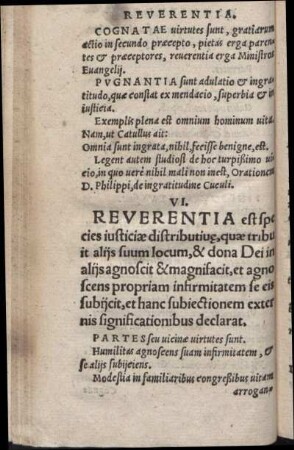 REVERENTIA.
COGNATAE uirtutes sunt, gratiarum
actio in secundo præcepto, pietas erga paren=
tes & præceptores, reuerentia erga Ministros
Euangelij.
PVGNANTIA sunt adulatio & ingra
titudo, quæ constat ex mendacio, superbia & in
iusticia.
Exemplis plena est omnium hominum uita
Nam, ut Catullus ait:
Omnia sunt ingrata, nihil, fecisse benigne, est.
Legent autem studiosi de hoc turpissimo ui
cio, in quo uerè nihil mali non inest, Orationem
D. Philippi, de ingratitudine Cuculi.
VI.
REVERENTIA est spe
cies iusticiæ distributiuę, quæ tribu
it alijs suum locum, & dona Dei in
alijs agnoscit & magnifacit, et agno
scens propriam infirmitatem se eis
subijcit, et hanc subiectionem exter
nis significationibus declarat.
PARTES seu uicinæ uirtutes sunt.
Humilitas agnoscens suam infirmitatem, &
se alijs subijciens.
Modestia in familiaribus congreßibus uitans
arrogan=